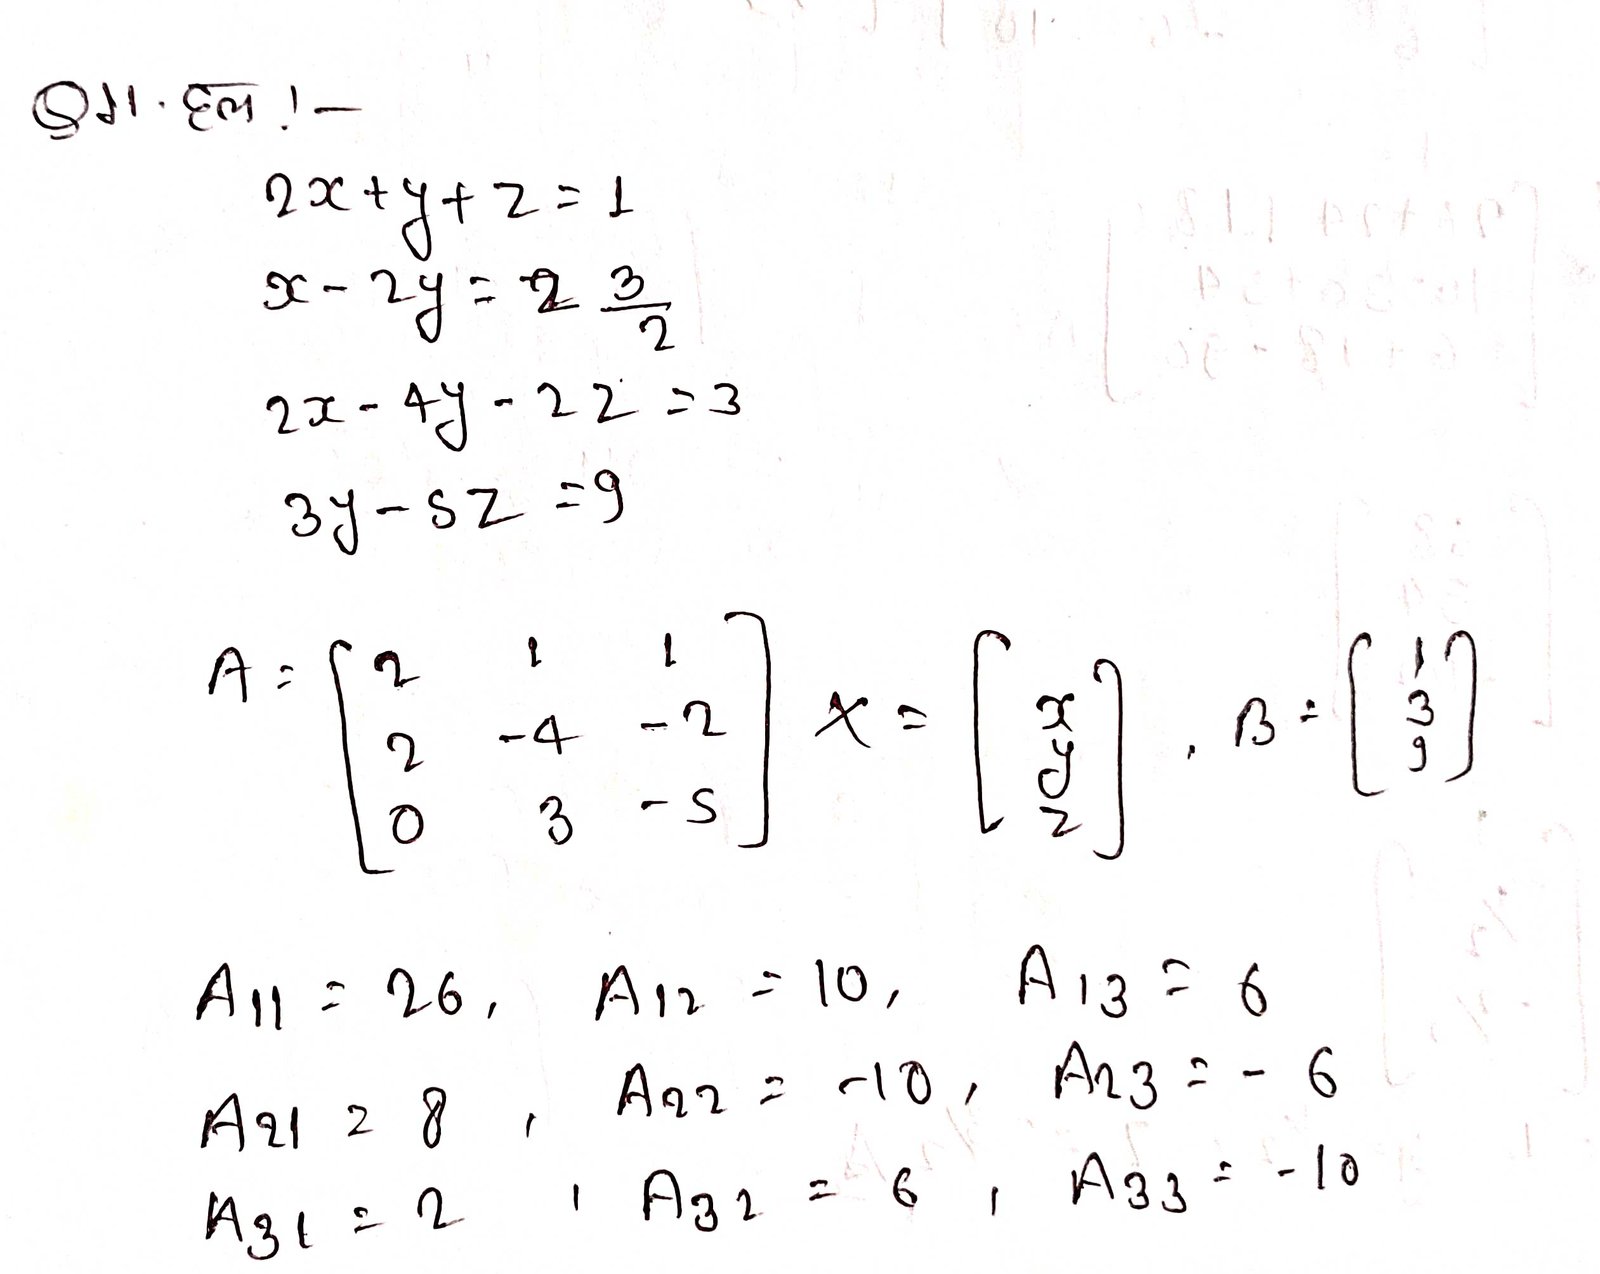 Q11. हल :-
2x+y+z=1
x-2y= 3/2
2x-4y-2z=3
3y-5z=9
A= [2 1 1
2 -4 -2
0 3 -5] X = [x
y
z], B = [1
3
9]
A11 = 26, A12 = 10, A13 = 6
A21 = 8, A22 = -10, A23 = -6
A31 = 2, A32 = 6, A33 = -10